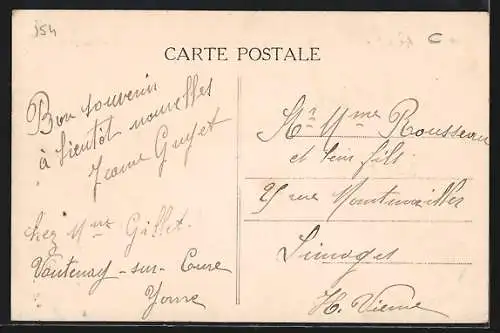 354
C
CARTE POSTALE
Bon souvenir
à bientôt nouvelles
Jeanne Guyet
chez Mme Gillet
Voutenay-sur-Cure
Yonne
Mr Mme Rousseau
et leur fils
rue
Limoges
H. Vienne